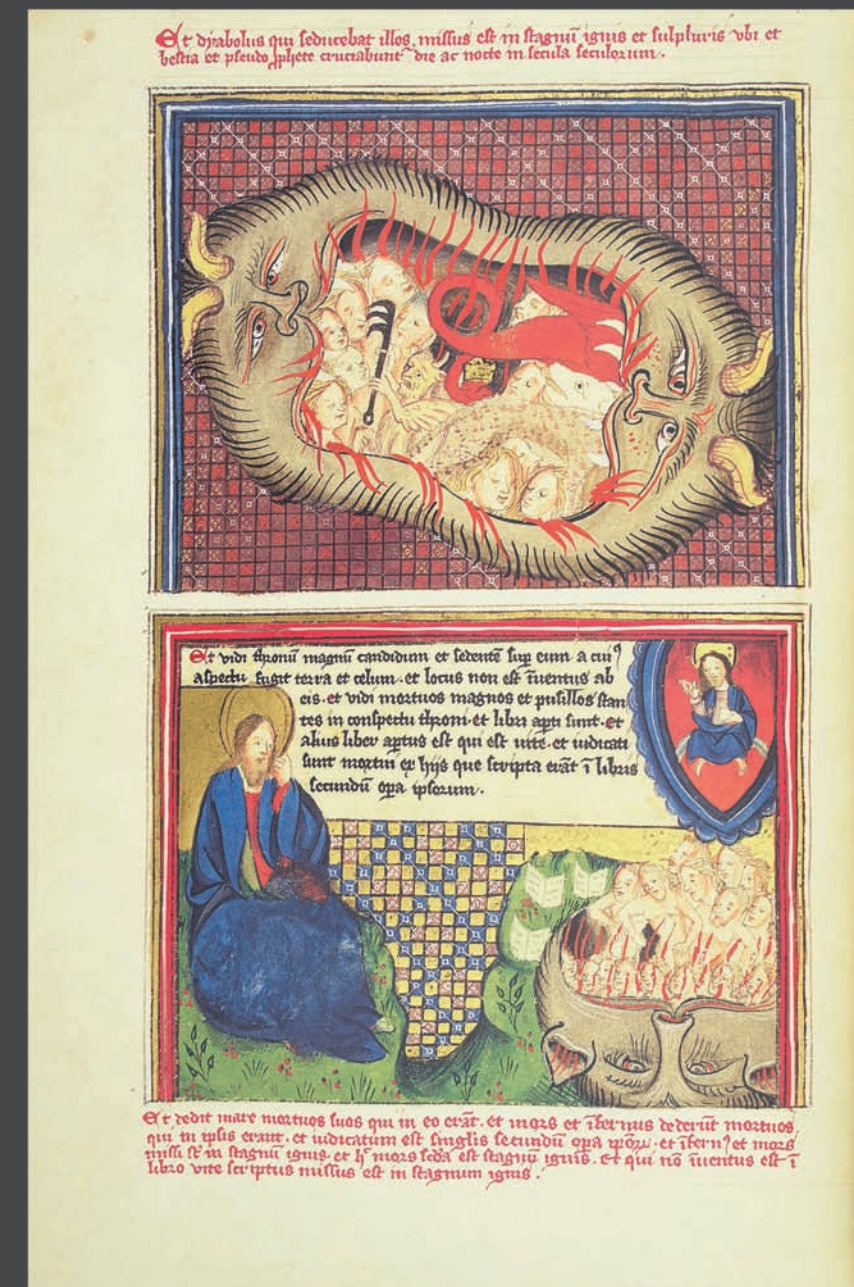 Et dyabolus qui seducebat illos. missus est in stagnū ignis et sulphuris vbi et
bestia et pseudo ꝓphete cruciabunt᷑ die ac nocte in secula seculorum.
Et vidi thronū magnū candidum et sedentē suꝑ eum a cuiꝰ
aspectu fugit terra et celum. et locus non est īuentus ab
eis. et vidi mortuos magnos et pusillos stan
tes in conspectu throni. et libri aꝑti sunt. et
alius liber aꝑtus est qui est uite. et iudicati
sunt mortui ex hijs que scripta erāt ī libris
secundū oꝑa ipsorum.
Et dedit mare mortuos suos qui in eo erāt. et mors et īfernus dederūt mortuos
qui in ipsis erant. et iudicatum est singlis secundū oꝑa ipoꝝ. et īfernꝰ et mors
missi sт̄ in stagnū ignis. et h᷑ mors scd̄a est stagnū ignis. et qui nō īuentus est ī
libro vite scriptus missus est in stagnum ignis.